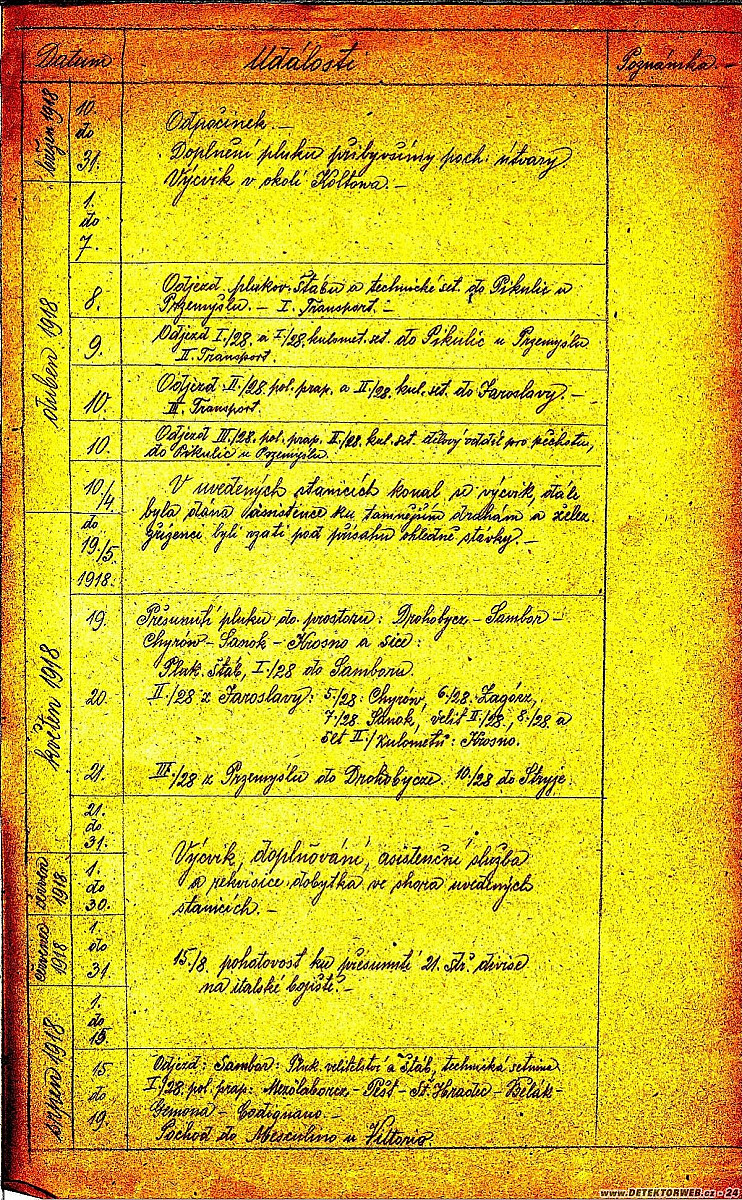 Datum Události Poznámka.-
březen 1918
10. do 31.
Odpočinek.-
Doplnění pluku přibyvšími poch. útvary.
Výcvik v okolí Koltowa.-
duben 1918
1. do 7.
8. Odjezd plukov. Štábu a technické set. do Pikulic u
Przemyślu.- I. Transport.-
9. Odjezd I./28. a I/28. kulomet. set. do Pikulic u Przemyślu
II. Transport.
10. Odjezd II./28. pol. prap. a II/28. kul. set. do Jaroslavy.-
III. Transport.
10. Odjezd III/28. pol. prap. II/28. kul. set. pro pěchotu,
do Pikulic u Przemyślu.
10/4. do 19./5. 1918.
V uvedených stanicích konal se výcvik, dále
byla dána assistence ku tamnějším drahám a želez.
zřízenci byli vzati pod přísahu ohledně stávky.-
květen 1918
19. Přesunutí pluku do prostoru: Drohobycz - Sambor -
Chyrów - Sanok - Krosno a sice:
Pluk. Štáb, I./28 do Samboru.
20. II./28 z Jaroslavy: 5/28. Chyrów, 6/28. Zagórz,
7/28. Sanok, velit. II/28., 8./28. a
set II./kulometů: Krosno.
21. III./28 z Przemyślu do Drohobycze. 10/28 do Stryje.
21. do 31.
červen 1918.
1. do 30.
Výcvik, doplňování, asistenční služba
a rekvisice dobytka ve shora uvedených
stanicích.-
červenec 1918
1. do 31.
15./8. pohotovost ku přesunutí 21. stř. divise
na italské bojiště.-
srpen 1918
1. do 15.
15. do 19.
Odjezd: Sambor: Pluk. velitelství a Štáb, technická setnina
I/28. pol. prap: Mezőlaborcz - Pešť - Hradec - Bělák -
Gemona - Codignano.-
Pochod do Mesculino u Vittorio.
www.DETEKTORWEB.cz - 24